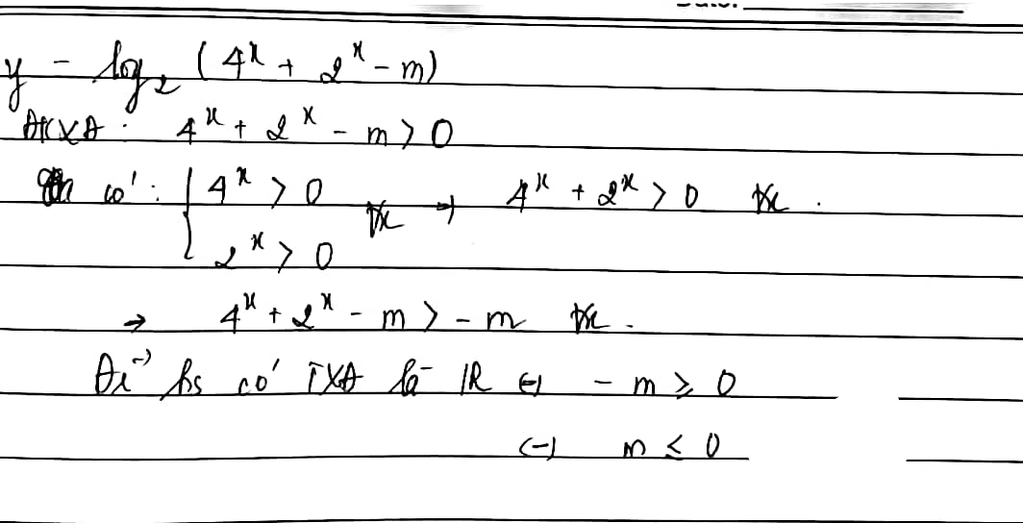 y = log₂ (4ˣ + 2ˣ - m)
ĐKXĐ : 4ˣ + 2ˣ - m > 0
có : { 4ˣ > 0 ∀x → 4ˣ + 2ˣ > 0 ∀x .
2ˣ > 0
→ 4ˣ + 2ˣ - m > - m ∀x .
Để hs có TXĐ là ℝ ⇔ - m ≥ 0
⇔ m ≤ 0